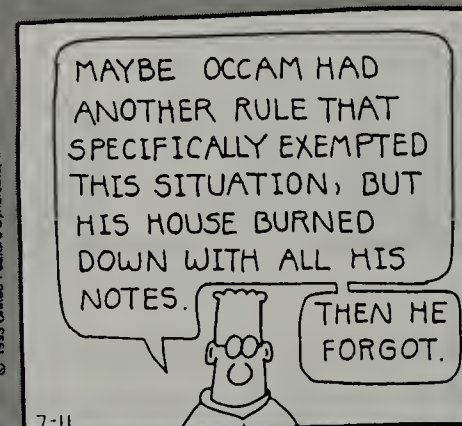 MAYBE OCCAM HAD
ANOTHER RULE THAT
SPECIFICALLY EXEMPTED
THIS SITUATION, BUT
HIS HOUSE BURNED
DOWN WITH ALL HIS
NOTES.
THEN HE
FORGOT.
7-11